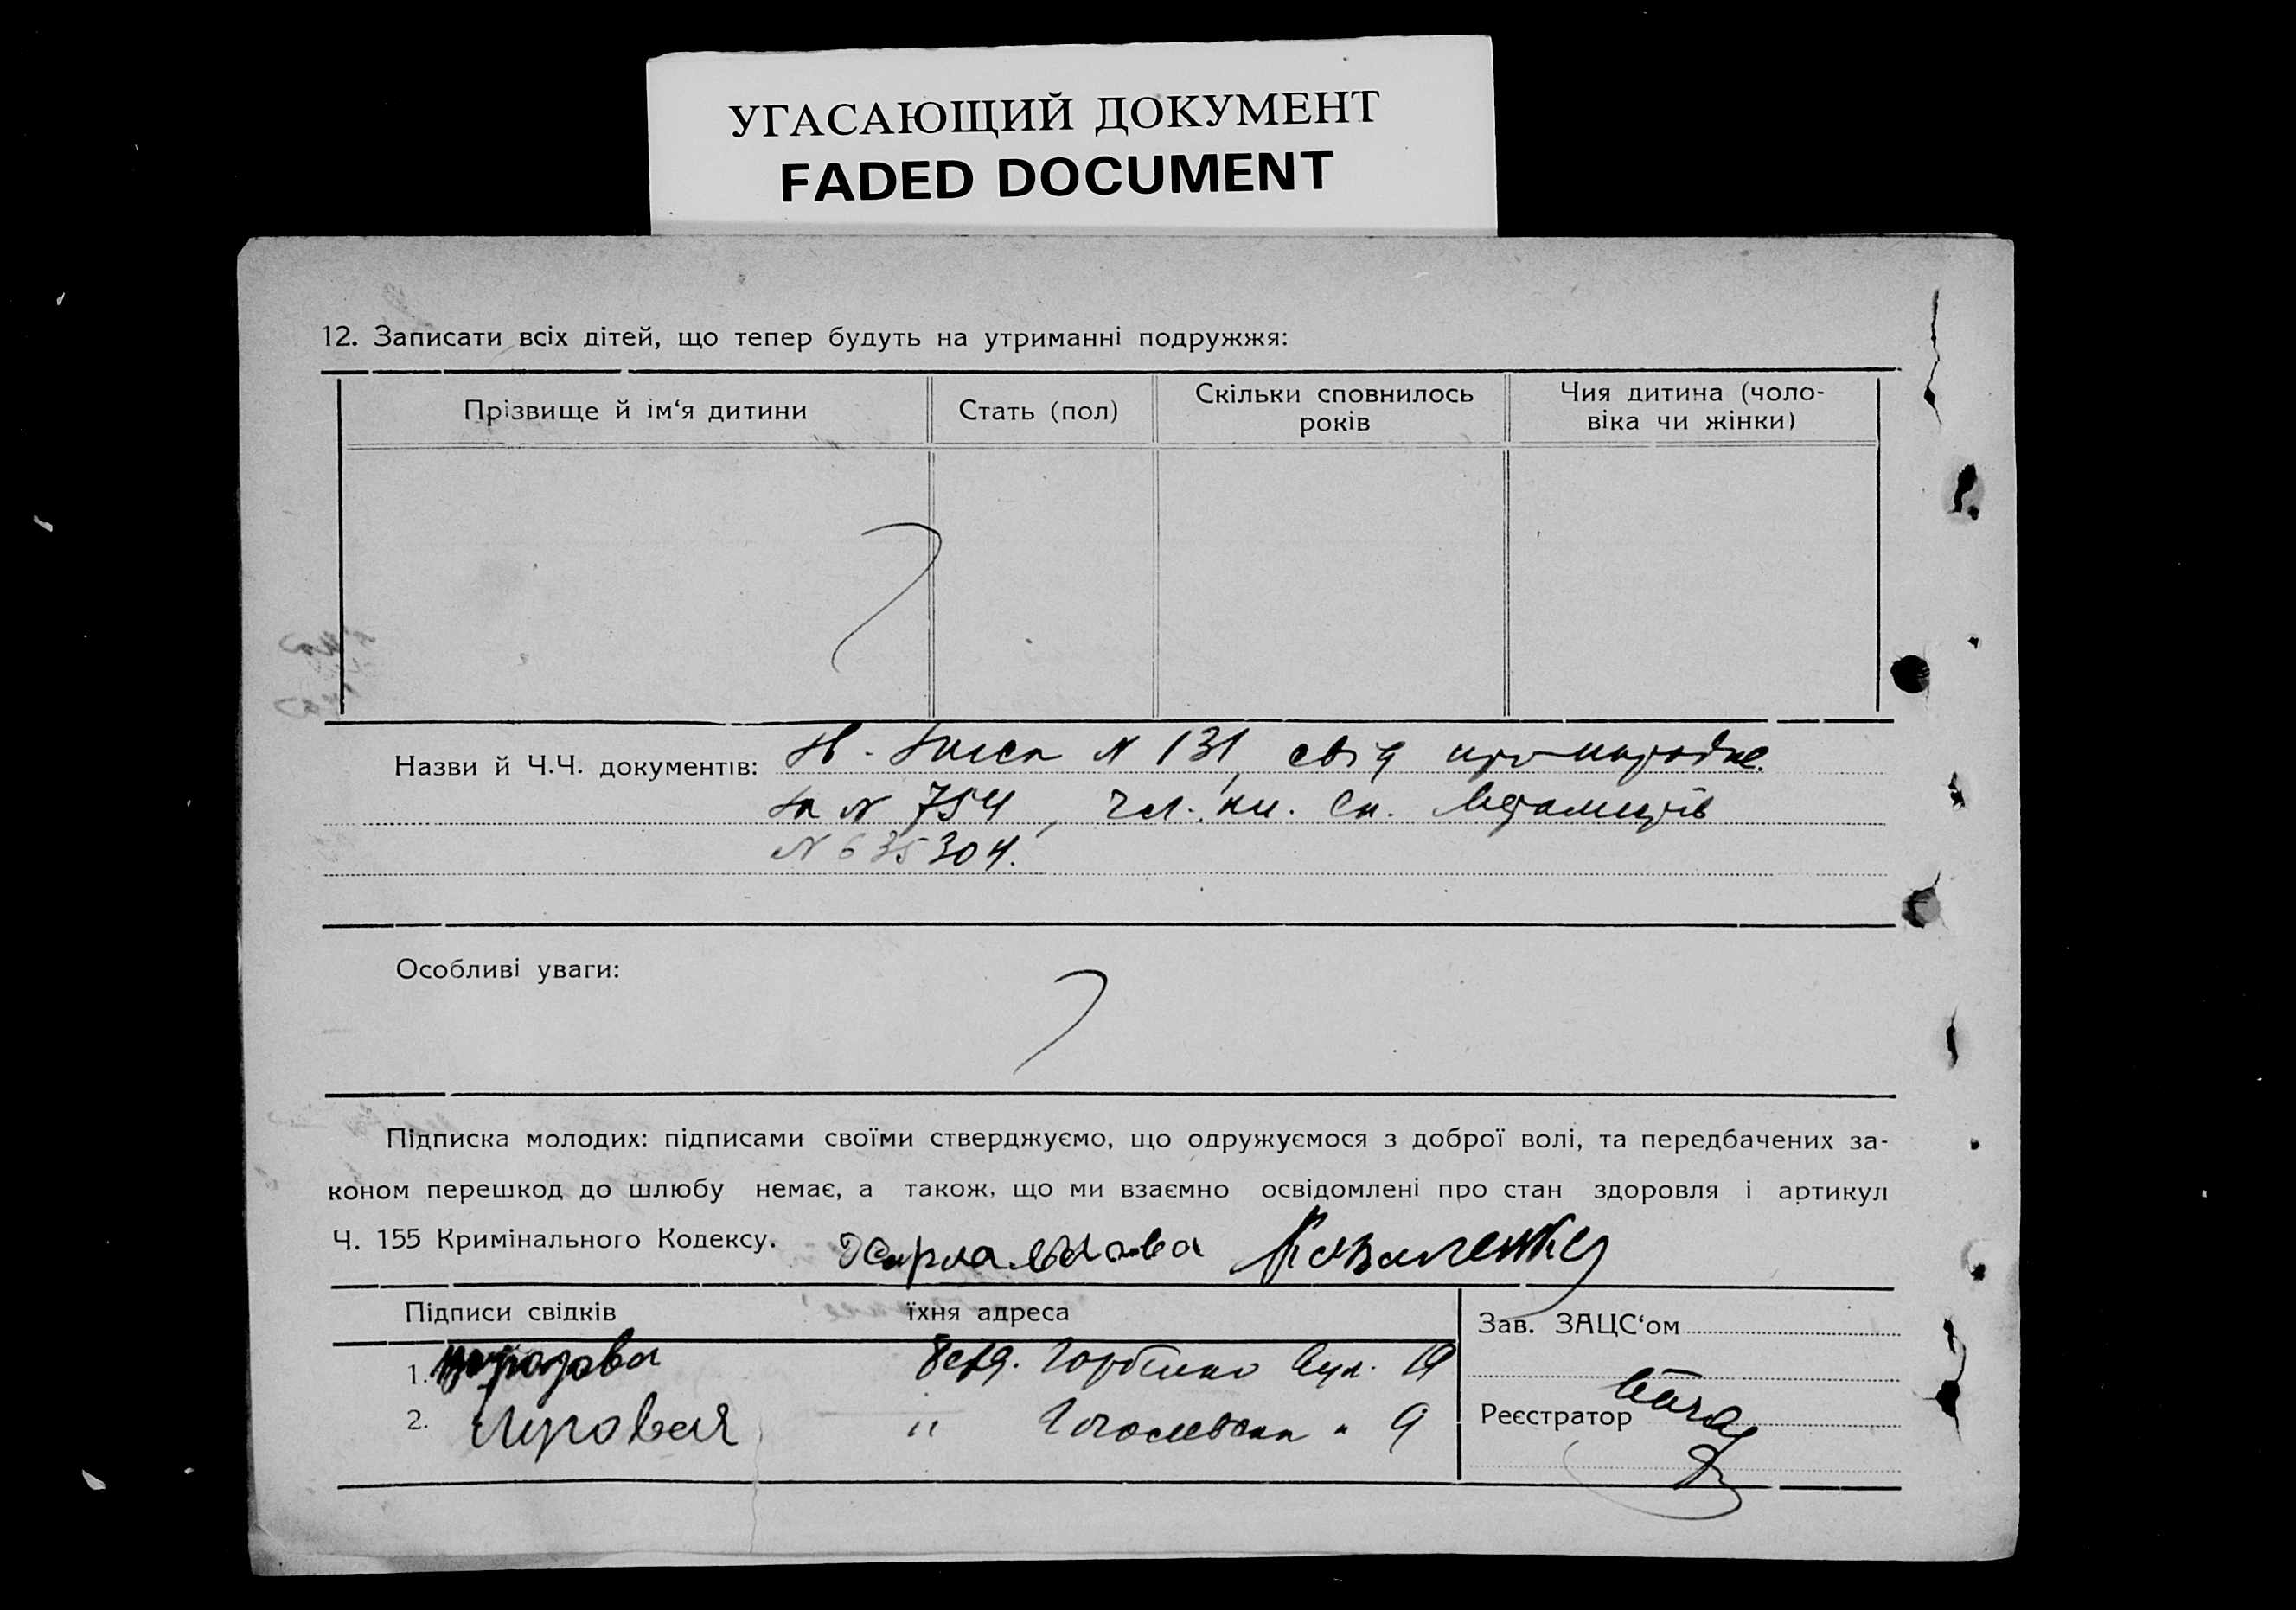 УГАСАЮЩИЙ ДОКУМЕНТ
FADED DOCUMENT
12. Записати всіх дітей, що тепер будуть на утриманні подружжя:
Прізвище й ім‘я дитини
Стать (пол)
Скільки сповнилось
років
Чия дитина (чоло-
віка чи жінки)
Назви й Ч.Ч. документів: N 131, свід
N 754, чл. кн.
N 635304.
Особливі уваги:
Підписка молодих: підписами своїми стверджуємо, що одружуємося з доброї волі, та передбачених за-
коном перешкод до шлюбу немає, а також, що ми взаємно освідомлені про стан здоровля і артикул
Ч. 155 Кримінального Кодексу. Коваленко
Підписи свідків
їхня адреса
Зав. ЗАЦС‘ом
1. вул. 19
2. " " 9
Реєстратор